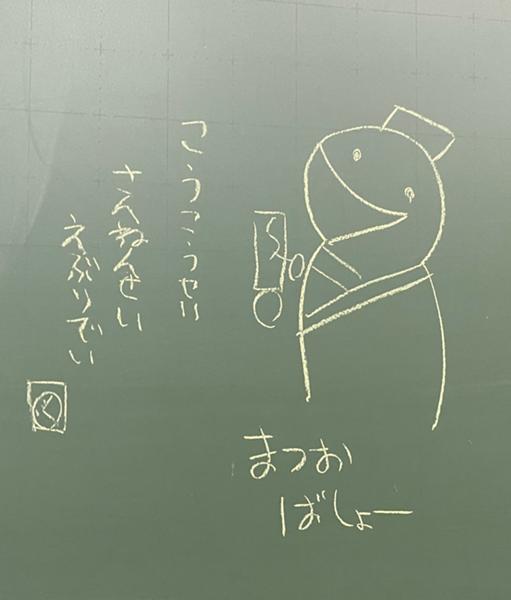 こうこうせい
さんねんせい
えぶりでい
く
まつお
ばしょー